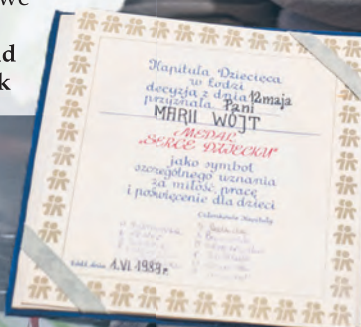 we
d
k
Kapituła Dziecięca
w Łodzi
decyzją z dnia 12 maja
przyznała Pani
MARII WÓJT
MEDAL
"SERCE DZIECKU"
jako symbol
szczególnego uznania
za miłość, pracę
i poświęcenie dla dzieci
Członkowie Kapituły
Łódź, dnia 1.VI.1989 r.